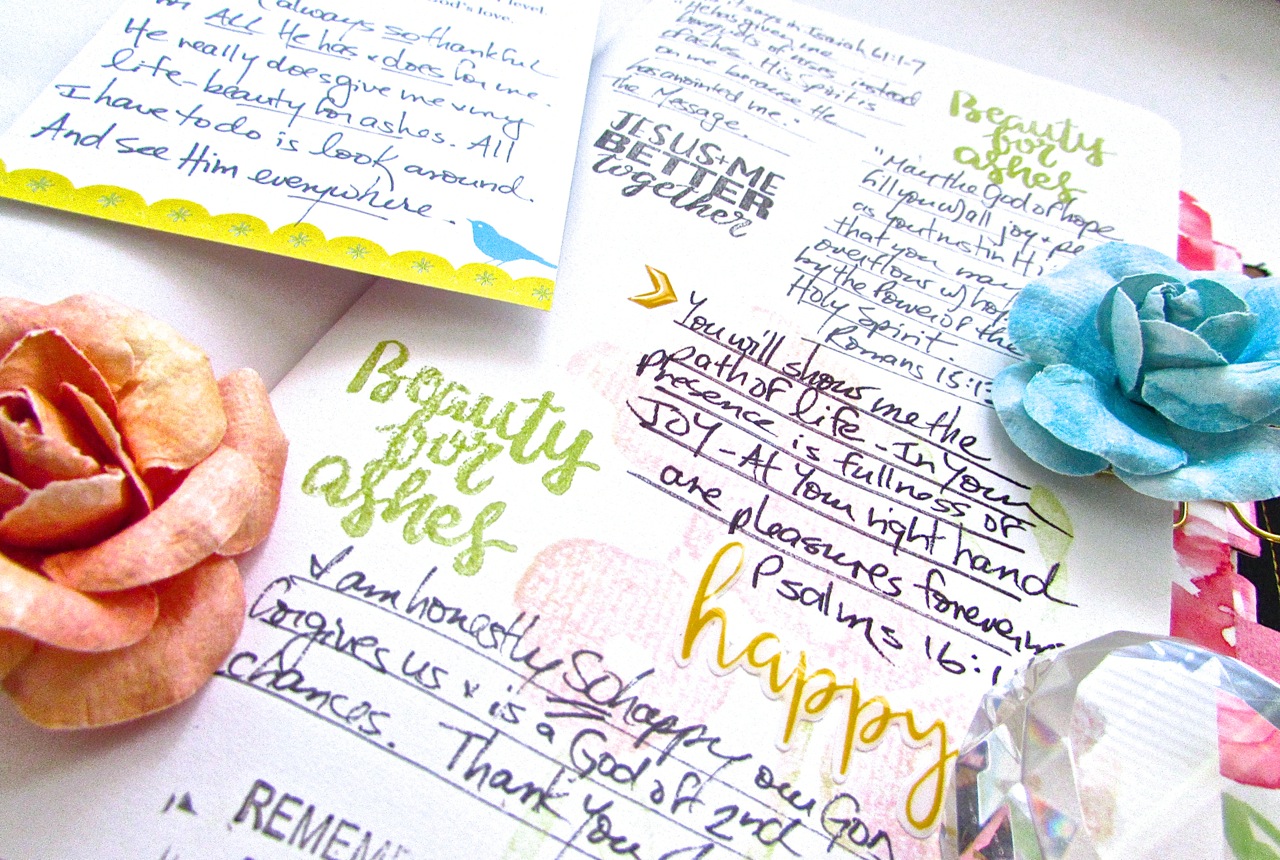 level.
God's love.
always so thankful
ALL He has & does for me.
He really does give me & my
life-beauty for ashes. All
I have to do is look around.
And see Him everywhere.
it says in Isaiah 61:1-7
"He has given me
bouquets of roses instead
of ashes. His Spirit is
on me because He
has anointed me."
the Message.
JESUS+ME
BETTER
together
Beauty
for
ashes
"May the God of hope
fill you w/ all joy + pe
as you trust in Hi
that you may
overflow w/ hop
by the power of the
Holy Spirit.
Romans 15:1
You will show me the
path of life - In Your
presence is fullness of
JOY - At Your right hand
are pleasures forever
Psalms 16:1
Beauty
for
ashes
I am honestly SO happy our God
forgives us & is a God of 2nd
chances. Thank You
happy
REMEM